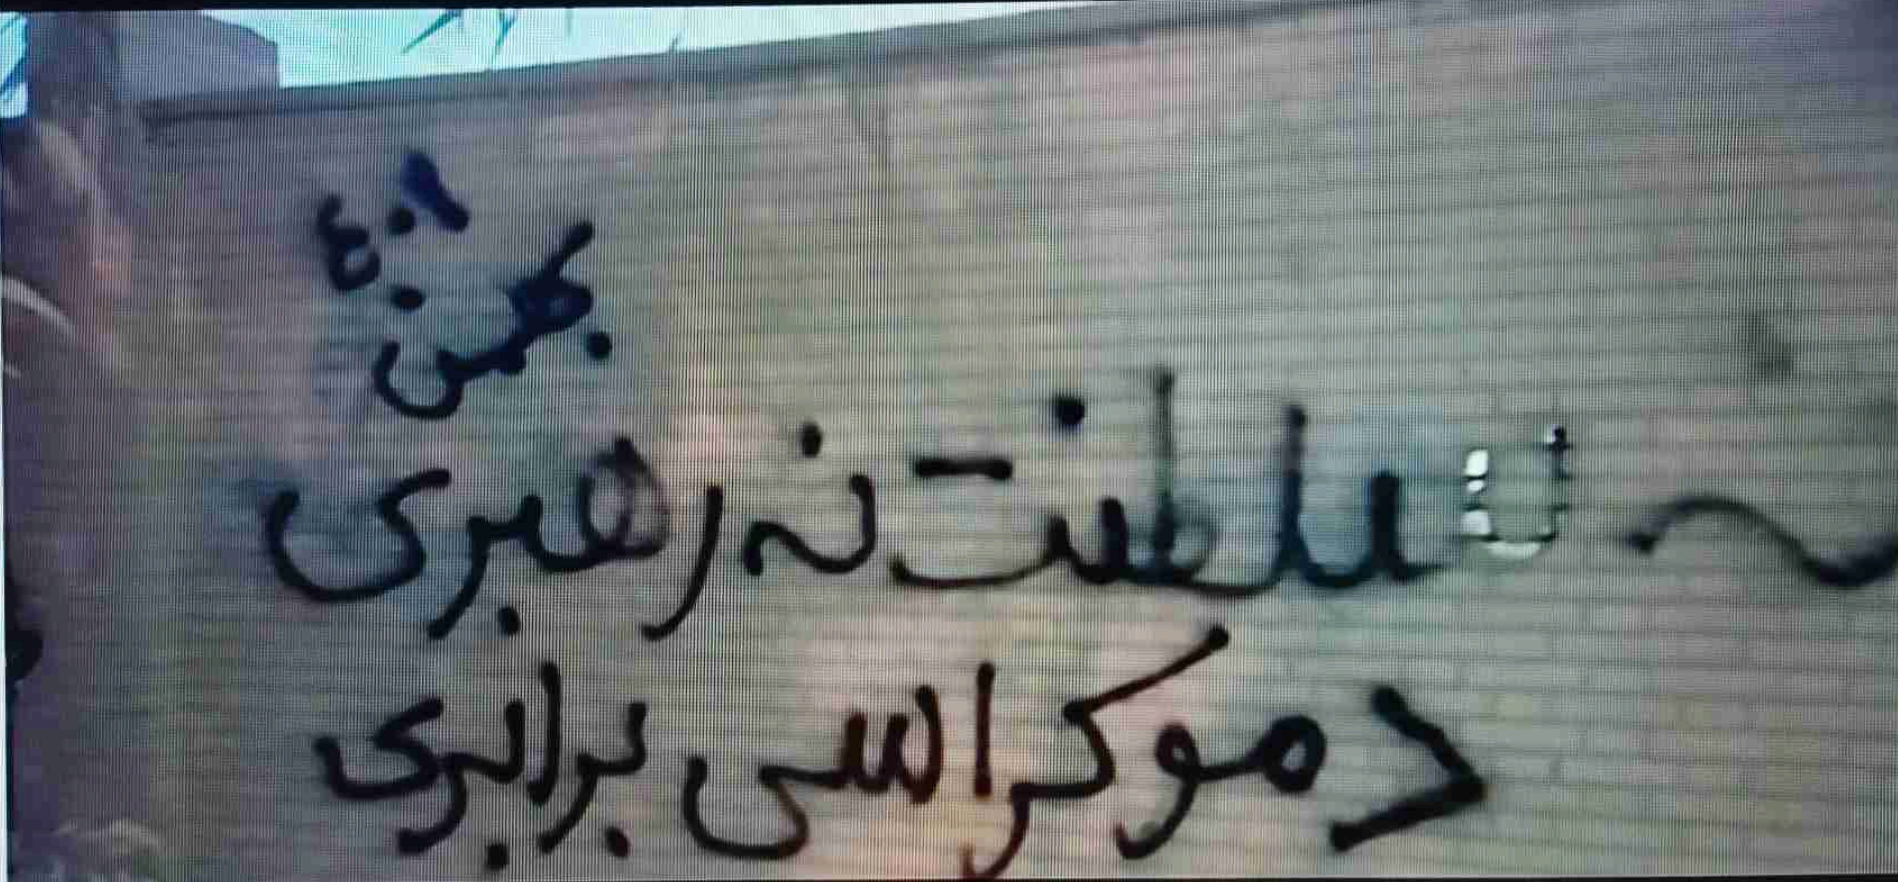 ۴۰۱
بهمن
نه سلطنت نه رهبری
دموکراسی برابری